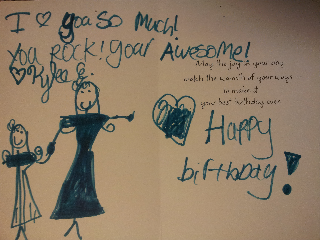 I ♡ you so Much!
You Rock! your Awesome!
♡ Kylea
May the joy
match the warmth of your ways
to make it
your best birthday ever
Happy
birthday!